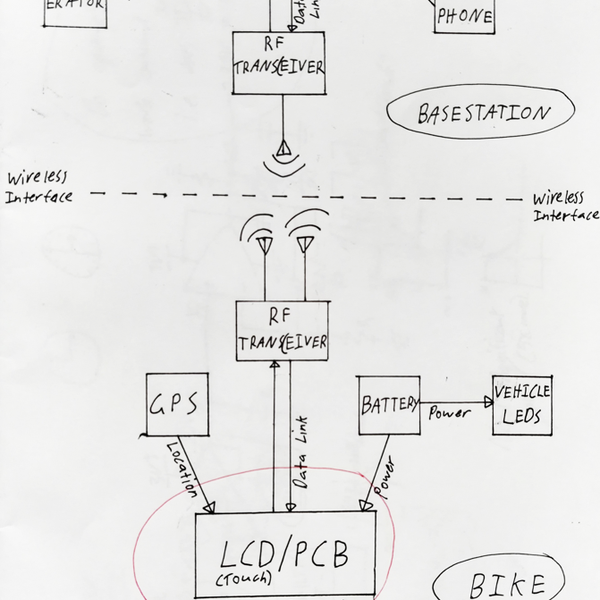 ERATOR
Data
Link
PHONE
RF
TRANSCEIVER
BASESTATION
Wireless
Interface
Wireless
Interface
RF
TRANSCEIVER
GPS
BATTERY
Power
VEHICLE
LEDS
Location
Data Link
Power
LCD/PCB
(Touch)
BIKE